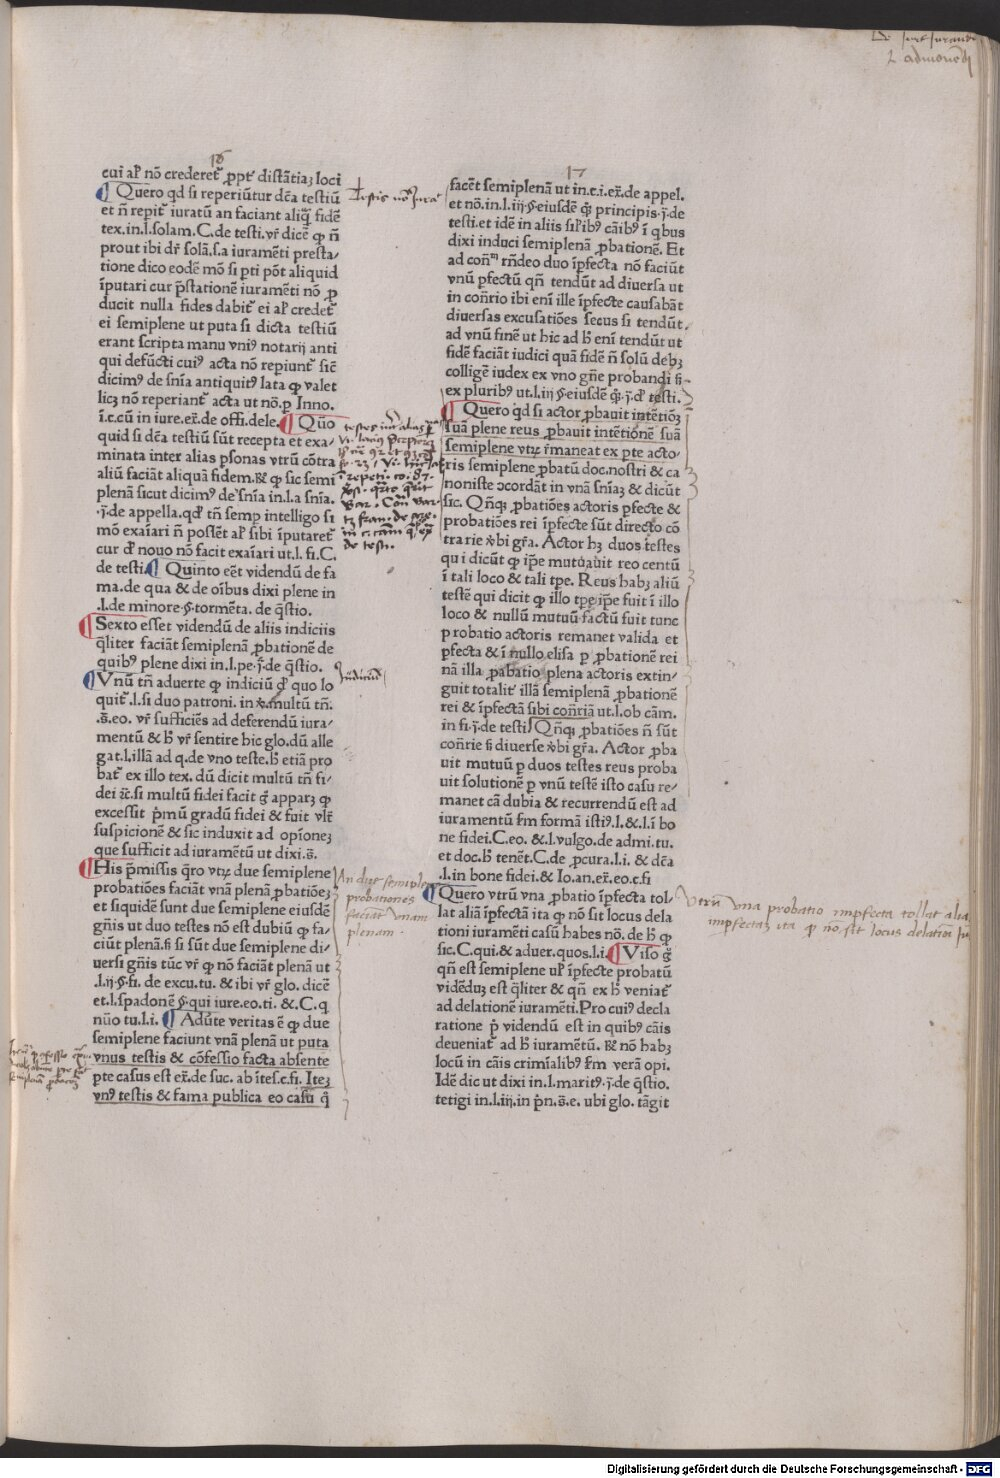 16
cui al' nõ crederet᷑ ꝓpt᷑ distãtiaꝫ loci
Quero qd si reperiũtur dc̃a testiũ
et ñ repit᷑ iuratũ an faciant aliq̃ fidẽ
tex. in.l.solam. C. de testi. vr̃ dicẽ ꝙ ñ
prout ibi dr̃ solã. s. a iuramẽti presta/
tione dico eodẽ mõ si pti põt aliquid
ĩputari cur p̃stationẽ iuramẽti nõ ꝓ
ducit nulla fides dabit᷑ ei al' credet᷑
ei semiplene ut puta si dicta testiũ
erant scripta manu vniꝰ notarij anti
qui defũcti cuiꝰ acta nõ repiunt᷑ sic̃
dicimꝰ de sñia antiquitꝰ lata ꝙ valet
licꝫ nõ reperiant᷑ acta ut nõ. ꝑ Inno.
ĩ.c.cũ in iure.ex̃.de offi.dele. Quo
quid si dc̃a testiũ sũt recepta et exa/
minata inter alias ꝑsonas vtrũ cõtra
aliũ faciat aliquã fidem. & ꝙ sic semi
plenã sicut dicimꝰ de sñia in.l.a sñia.
.j.de appella.qd' tñ semp intelligo si
mõ exaĩari ñ poss̃et al' sibi ĩputaret᷑
cur d' nouo nõ facit exaĩari ut.l.fi.C.
de testi. Quinto eẽt videndũ de fa
ma. de qua & de oĩbus dixi plene in
.l. de minore. §. tormẽta. de q̃stio.
Sexto esset videndũ de aliis indiciis
q̃liter faciãt semiplenã ꝓbationẽ de
quibꝰ plene dixi in.l.pe. j. de q̃stio.
Vnũ tñ aduerte ꝙ indiciũ d' quo lo
quit᷑.l.si duo patroni. in v̾. multũ tñ.
.s̃.eo. vr̃ sufficiẽs ad deferendũ iura/
mentũ & h' vr̃ sentire hic glo. dũ alle
gat.l.illã ad q. de vno teste. h' etiã pro
bat᷑ ex illo tex. dũ dicit multũ tñ fi/
dei ⁊c. si multũ fidei facit g̃ apparꝫ ꝙ
excessit p̾mũ gradũ fidei & fuit vlt̃
suspicionẽ & sic induxit ad opĩoneꝫ
que sufficit ad iuramẽtũ ut dixi. s̃.
His p̃missis q̃ro vtꝝ due semiplene
probatiões faciãt vnã plenã ꝓbatiõeꝫ
et siquidẽ sunt due semiplene eiusdẽ
gñis ut duo testes nõ est dubiũ ꝙ fa/
ciũt plenã. si si sũt due semiplene di/
uersi gñis tũc vr̃ ꝙ nõ faciãt plenã ut
.l.ij §.fi. de excu.tu. & ibi vr̃ glo. dicẽ
et.l.spadonẽ §.qui iure.eo.ti. &.C.q
nũo tu.l.i. Adũte veritas ẽ ꝙ due
semiplene faciunt vnã plenã ut puta
vnus testis & cõfessio facta absente
pte casus est ex̃.de suc. ab ĩtes.c.fi. Iteꝫ
vnꝰ testis & fama publica eo casũ q̃
17
facẽt semiplenã ut in.c.i.ex̃.de appel.
et nõ.in.l.iij §.eiusdẽ q̃ꝫ principis.j.de
testi. et idẽ in aliis sil'ibꝰ cãibꝰ ĩ qbus
dixi induci semiplenã ꝓbationẽ. Et
ad con̾m rñdeo duo ĩꝑfecta nõ faciũt
vnũ ꝑfectũ qñ tendũt ad diuersa ut
in con̾rio ibi enĩ ille ĩꝑfecte causabãt
diuersas excusatiões secus si tendũt
ad vnũ finẽ ut hic ad h' enĩ tendũt ut
fidẽ faciãt iudici quã fidẽ ñ solũ debꝫ
colligẽ iudex ex vno gñe probandi si-
ex pluribꝰ ut.l.iij §.eiusdẽ q̃ꝫ.j.d' testi.
Quero qd si actor ꝓbauit intẽtiõeꝫ
suã plene reus ꝓbauit intẽtionẽ suã
semiplene vtꝝ r̃maneat ex pte acto/
ris semiplene ꝓbatũ doc. nostri & ca
noniste ↄcordãt in vnã sñiaꝫ & dicũt
sic. Qñqꝫ ꝓbatiões actoris ꝑfecte &
probatiões rei ĩꝑfecte sũt directo cõ
trarie v̾bi gr̃a. Actor hꝫ duos testes
qui dicũt ꝙ ip̃e mutuauit reo centũ
ĩ tali loco & tali tp̃e. Reus habꝫ aliũ
testẽ qui dicit ꝙ illo tp̃e ip̃e fuit ĩ illo
loco & nullũ mutuũ factũ fuit tunc
probatio actoris remanet valida et
ꝑfecta & ĩ nullo elisa ꝑ ꝓbationẽ rei
nã illa ꝓbatio plena actoris extin/
guit totalit᷑ illã semiplenã ꝓbationẽ
rei & ĩꝑfectã sibi con̾riã ut.l.ob cãm.
in fi.j.de testi Qñqꝫ ꝓbatiões ñ sũt
con̾rie si diuerse v̾bi gr̃a. Actor ꝓba
uit mutuũ ꝑ duos testes reus proba
uit solutionẽ ꝑ vnũ testẽ isto casu re/
manet cã dubia & recurrendũ est ad
iuramentũ s̃m formã istiꝰ.l.&.l.ĩ bo
ne fidei.C.eo.&.l.vulgo.de admi.tu.
et doc.h' tenẽt.C.de ꝓcura.l.i.& dc̃a
.l.in bone fidei.& Io.an.ex̃.eo.c.fi
Quero vtrũ vna ꝓbatio ĩꝑfecta tol/
lat aliã ĩꝑfectã ita ꝙ nõ sit locus dela
tioni iuramẽti casũ habes nõ. de h' ꝙ
sic.C.qui.& aduer.quos.l.i. Viso g̃
qñ est semiplene ul' ĩꝑfecte probatũ
vidẽduꝫ est q̃liter & qñ ex h' veniat᷑
ad delationẽ iuramẽti. Pro cuiꝰ decla
ratione p̾ videndũ est in quibꝰ cãis
deueniat᷑ ad h' iuramẽtũ. & nõ habꝫ
locũ in cãis crimĩalibꝰ s̃m verã opi.
Idẽ dic ut dixi in.l.maritꝰ.j.de q̃stio.
tetigi in.l.iij.in p̾n.s̃.e. ubi glo. tãgit
An due semiplene
probationes
faciant vnam
plenam.
Vtrum vna probatio imperfecta tollat alia
imperfectaꝫ ita ꝙ nõ sit locus delatioi
Digitalisierung gefördert durch die Deutsche Forschungsgemeinschaft - DFG